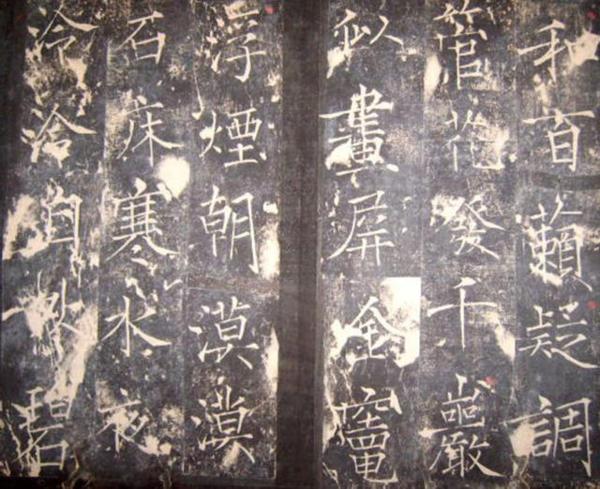 和百籟疑調
管花發千巖
似畫屏金竈
浮煙朝漠漠
石床寒水夜
泠泠自然碧